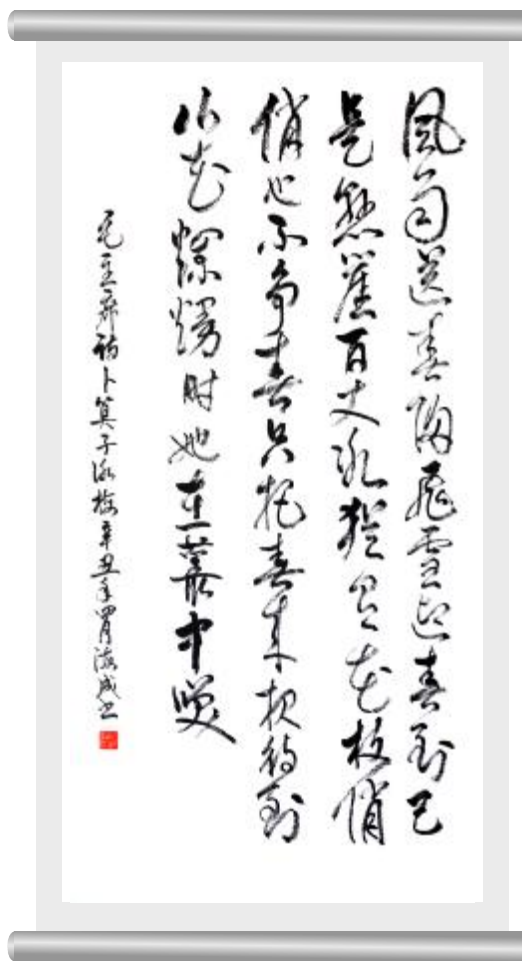 風雨送春歸飛雪迎春到已
是懸崖百丈冰猶有花枝俏
俏也不争春只把春来报待到
山花爛熳时她在叢中咲
毛主席詞卜算子咏梅辛丑年四月海成书